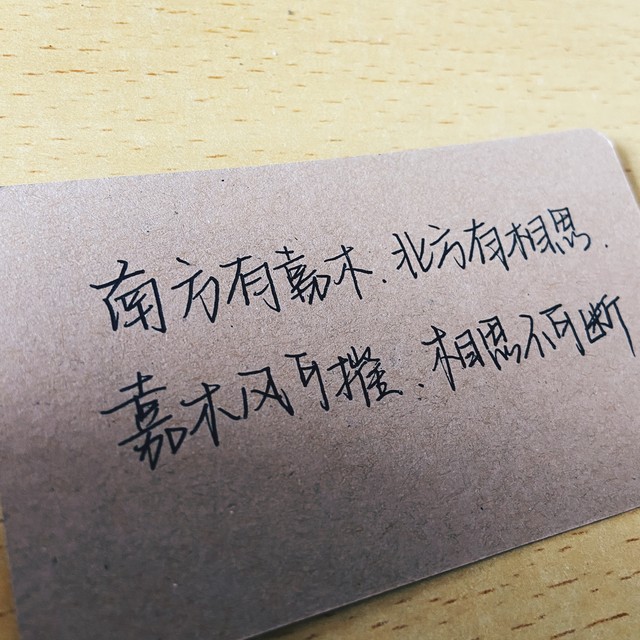 南方有嘉木.北方有相思.
嘉木风可摧、相思不可断